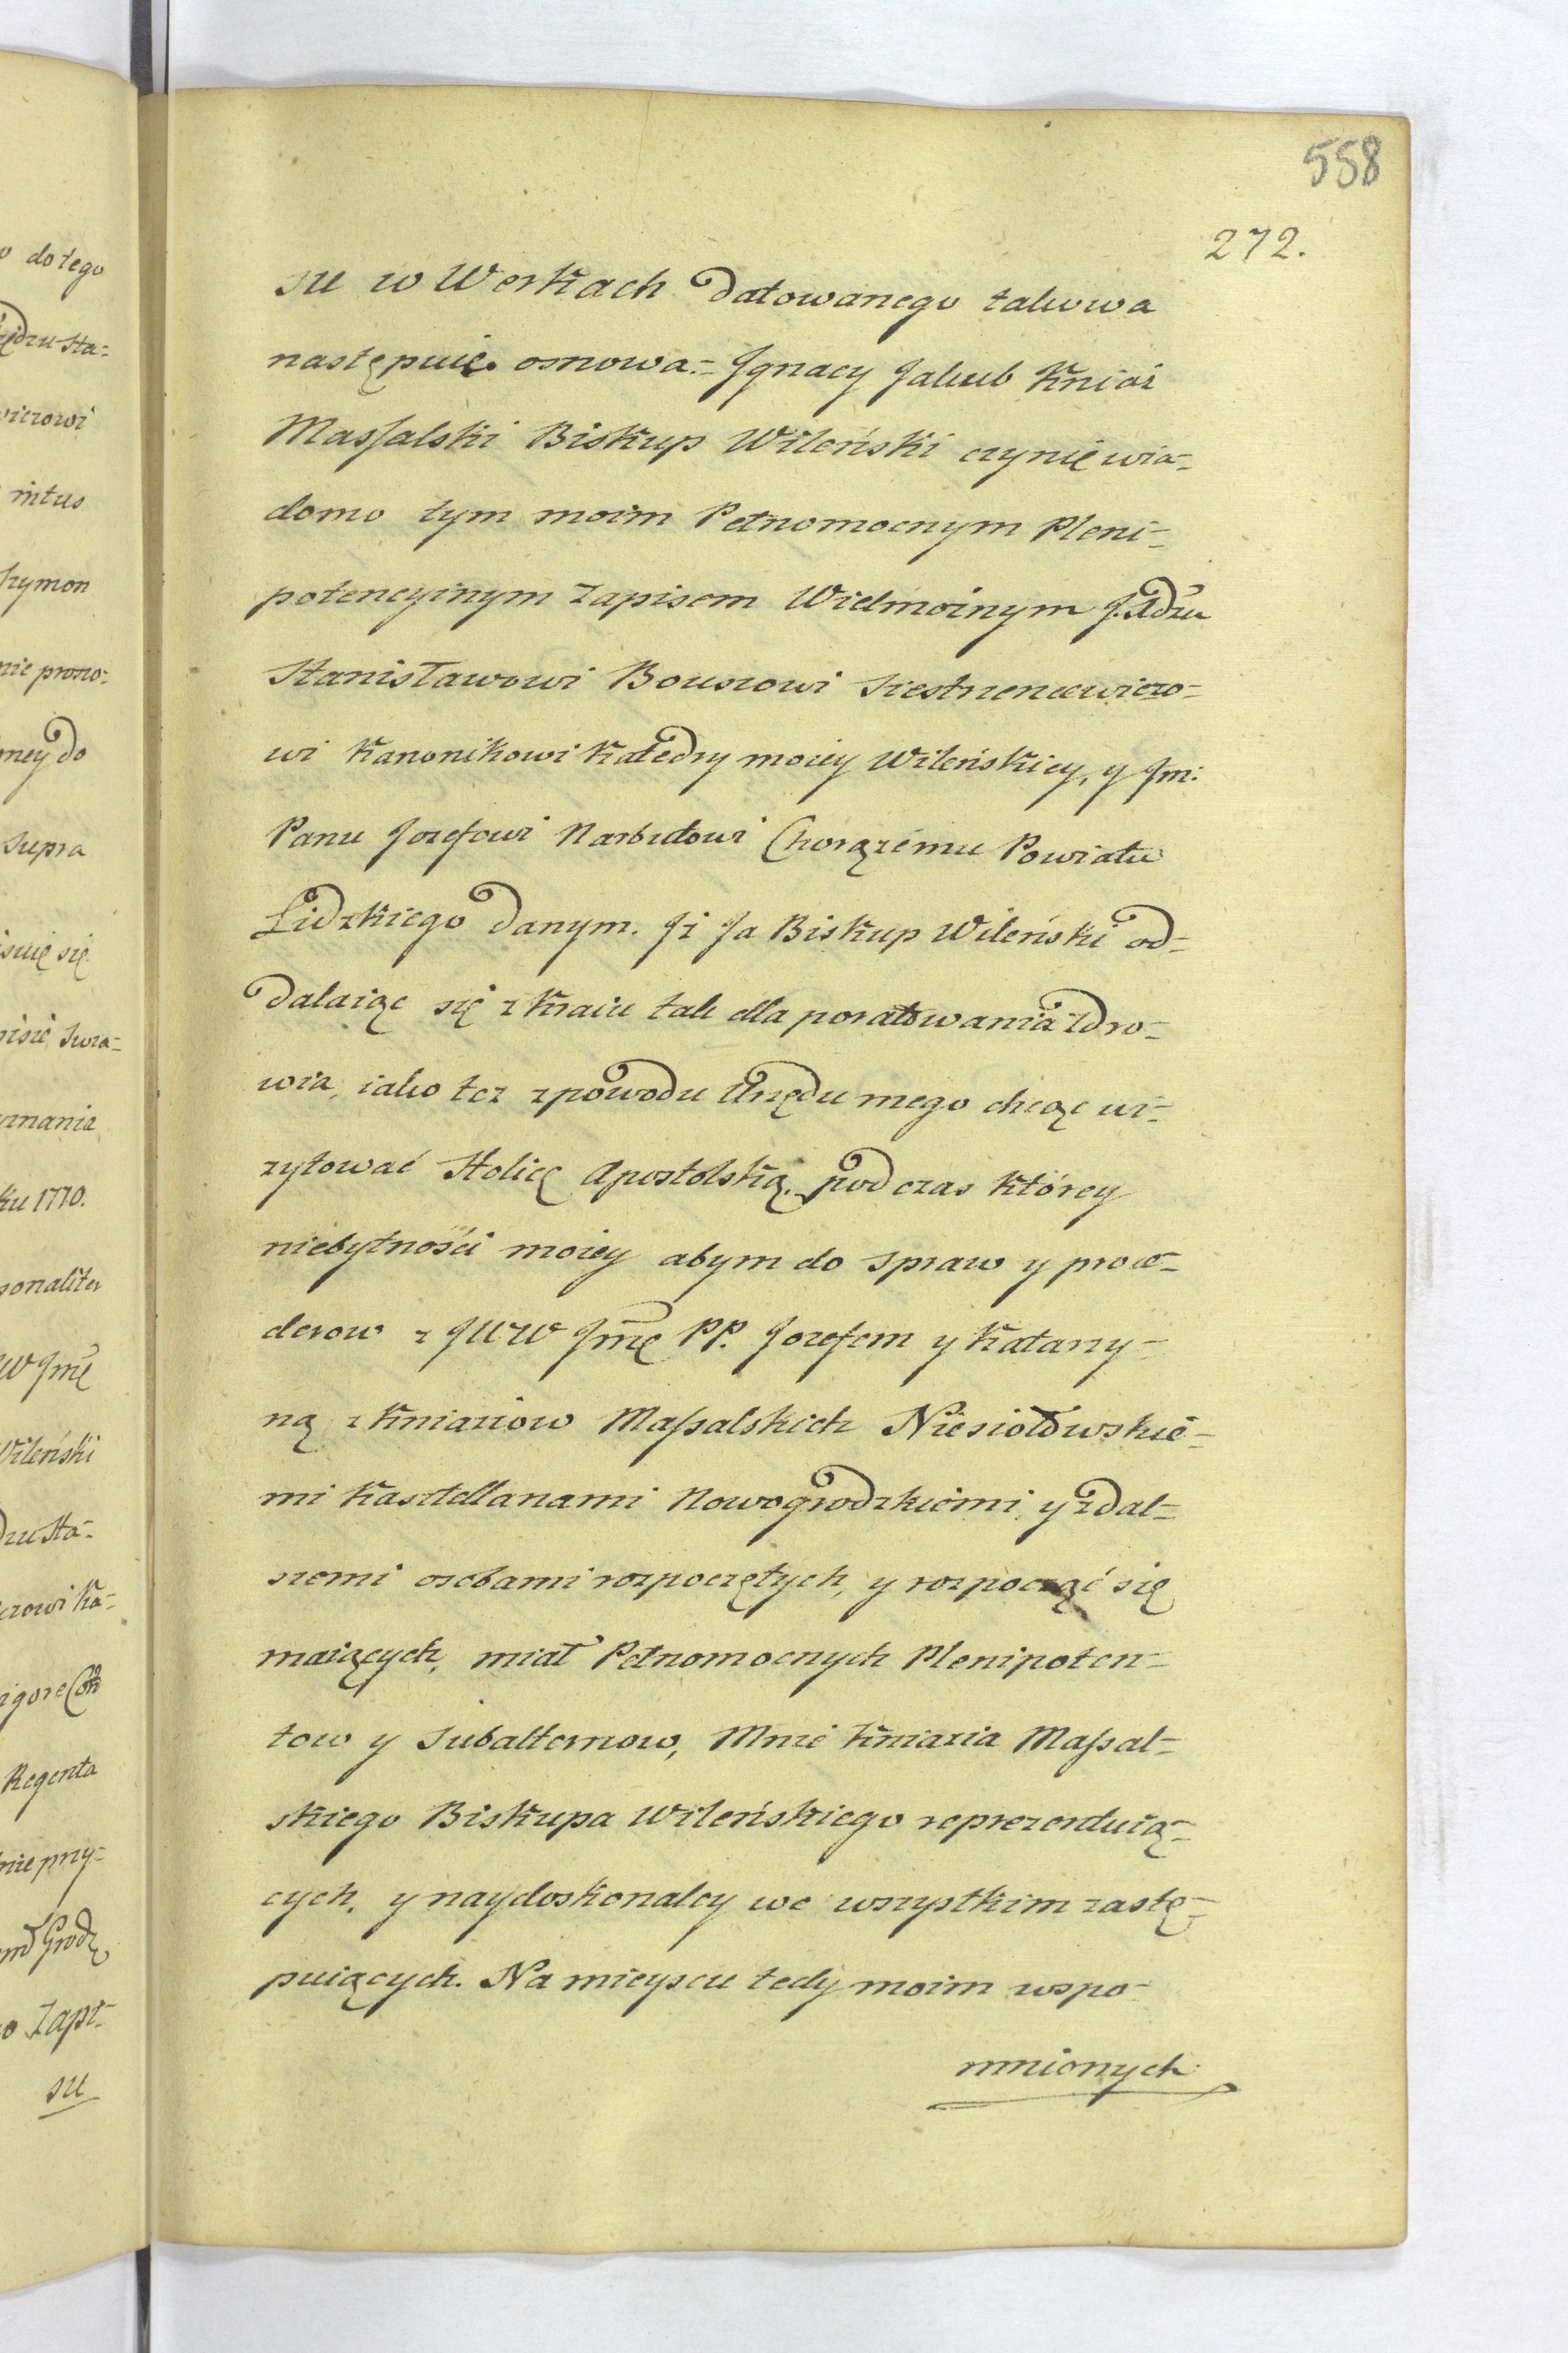 558
272.
su w Werkach datowanego takowa
następuię osnowa.= Jgnacy Jakub Kniaź
Massalski Biskup Wileński czynię wia=
domo tym moim Pełnomocnym Pleni=
potencyinym Zapisem Wielmożnym J. Xdzu
Stanisławowi Bouszowi Siestrzencewiczo=
wi Kanonikowi Katedry moiey Wileńskiey, y Jm:
Panu Jozefowi Narbutowi Chorązému Powiatu
Lidzkiego danym. Jż Ja Biskup Wileński od=
dalaiąc się z Kraiu tak dla poratowania zdro=
wia, iako tez z powodu Urzędu mego chcąc wi=
zytować Stolicę Apostolską, podczas którey
niebytności moiey abym do spraw y proce=
derow z JWW Jmę PP. Jozefem y Katarzy=
ną z Kniaziow Massalskich Niesiołowskié=
mi Kasztellanami Nowogrodzkiémi, y z dal=
szemi osobami rozpoczętych, y rozpocząć się
maiących, miał Pełnomocnych Plenipoten=
tow y Subalternow, Mnie Kniazia Massal=
skiego Biskupa Wileńskiego reprezentuią=
cych, y naydoskonaley we wszystkim zastę=
puiących. Na mieyscu tedy moim wspo=
mnionych
o do tego
ędzu Sta=
wiczowi
intus
Szymon
ney do
Supra
suię się
pisie, Swra=
yznania
ku 1770.
sonaliter
W Jmę
Wileński
dzu Sta=
czowi Ka=
igore Con
Regenta
nie przy=
o Zapi=
su